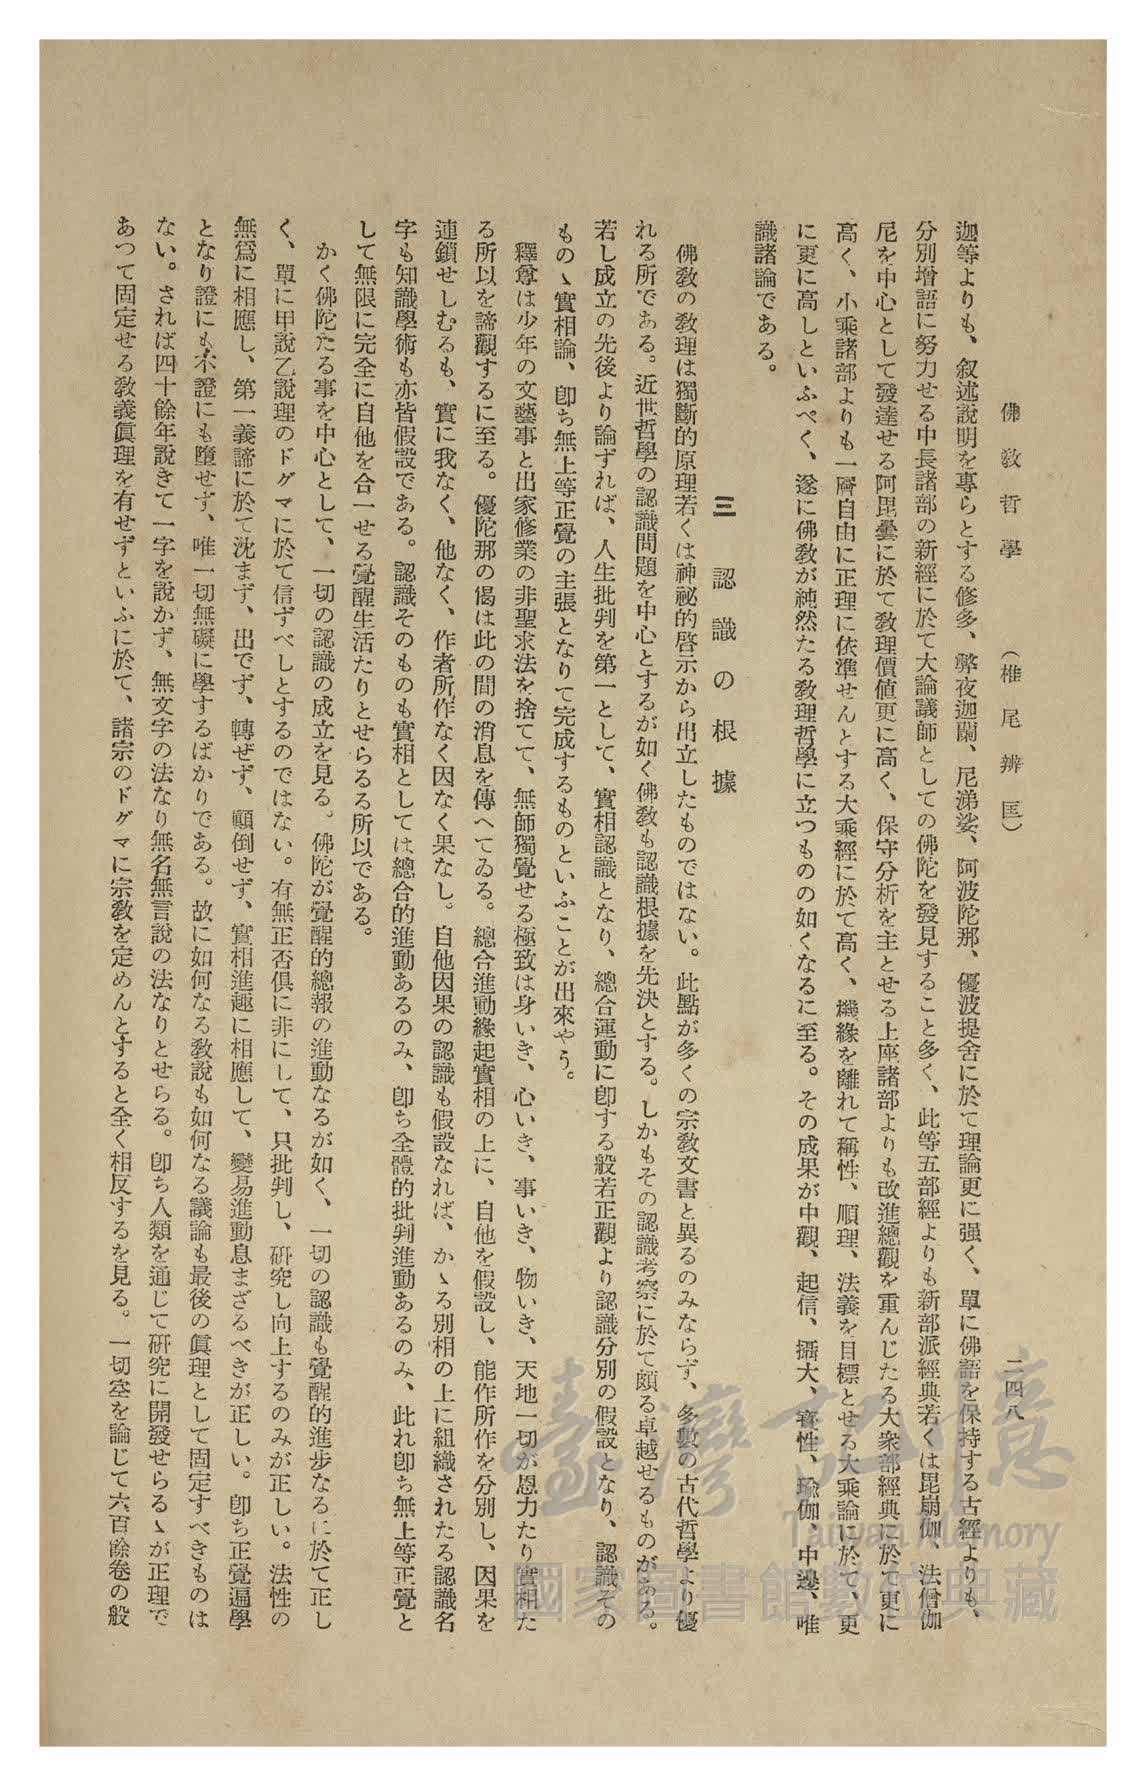 佛教哲學　（椎尾辨匡）　二四八
迦等よりも、叙述說明を專らとする修多、弊夜迦蘭、尼涕娑、阿波陀那、優波提舍に於て理論更に强く、單に佛語を保持する古經よりも、
分別增語に努力せる中長諸部の新經に於て大論議師としての佛陀を發見すること多く、此等五部經よりも新部派經典若くは毘崩伽、法僧伽
尼を中心として發達せる阿毘曇に於て敎理價値更に高く、保守分析を主とせる上座諸部よりも改進總觀を重んじたる大衆部經典に於て更に
高く、小乘諸部よりも一層自由に正理に依準せんとする大乘經に於て高く、機緣を離れて稱性、順理、法義を目標とせる大乘論に於て、更
に更に高しといふべく、遂に佛敎が純然たる敎理哲學に立つものの如くなるに至る。その成果が中觀、起信、攝大、寶性、瑜伽、中邊、唯
識諸論である。
三　認識の根據
佛敎の敎理は獨斷的原理若くは神祕的啓示から出立したものではない。此點が多くの宗敎文書と異るのみならず、多數の古代哲學より優
れる所である。近世哲學の認識問題を中心とするが如く佛敎も認識根據を先決とする。しかもその認識考察に於て頗る卓越せるものがある。
若し成立の先後より論ずれば、人生批判を第一として、實相認識となり、總合運動に卽する般若正觀より認識分別の假設となり、認識その
もの、實相論、卽ち無上等正覺の主張となりて完成するものといふことが出來やう。
釋尊は少年の文藝事と出家修業の非聖求法を捨てて、無師獨覺せる極致は身いき、心いき、事いき、物いき、天地一切が恩力たり實相た
る所以を諦觀するに至る。優陀那の偈は此の間の消息を傳へてゐる。總合進動緣起實相の上に、自他を假設し、能作所作を分別し、因果を
連鎖せしむるも、實に我なく、他なく、作者所作なく因なく果なし。自他因果の認識も假設なれば、かゝる別相の上に組織されたる認識名
字も知識學術も亦皆假設である。認識そのものも實相としては總合的進動あるのみ、卽ち全體的批判進動あるのみ、此れ卽ち無上等正覺と
して無限に完全に自他を合一せる覺醒生活たりとせらるる所以である。
かく佛陀たる事を中心として、一切の認識の成立を見る。佛陀が覺醒的總報の進動なるが如く、一切の認識も覺醒的進步なるに於て正し
く、單に甲說乙說理のドグマに於て信ずべしとするのではない。有無正否俱に非にして、只批判し、硏究し向上するのみが正しい。法性の
無爲に相應し、第一義諦に於て沈まず、出でず、轉ぜず、顚倒せず、實相進趣に相應して、變易進動息まざるべきが正しい。卽ち正覺遍學
となり證にも不證にも墮せず、唯一切無礙に學するばかりである。故に如何なる敎說も如何なる議論も最後の眞理として固定すべきものは
ない。されば四十餘年說きて一字を說かず、無文字の法なり無名無言說の法なりとせらる。卽ち人類を通じて硏究に開發せらるゝが正理で
あつて固定せる敎義眞理を有せずといふに於て、諸宗のドグマに宗敎を定めんとすると全く相反するを見る。一切空を論じて六百餘卷の般
臺灣記憶
Taiwan Memory
國家圖書館數位典藏